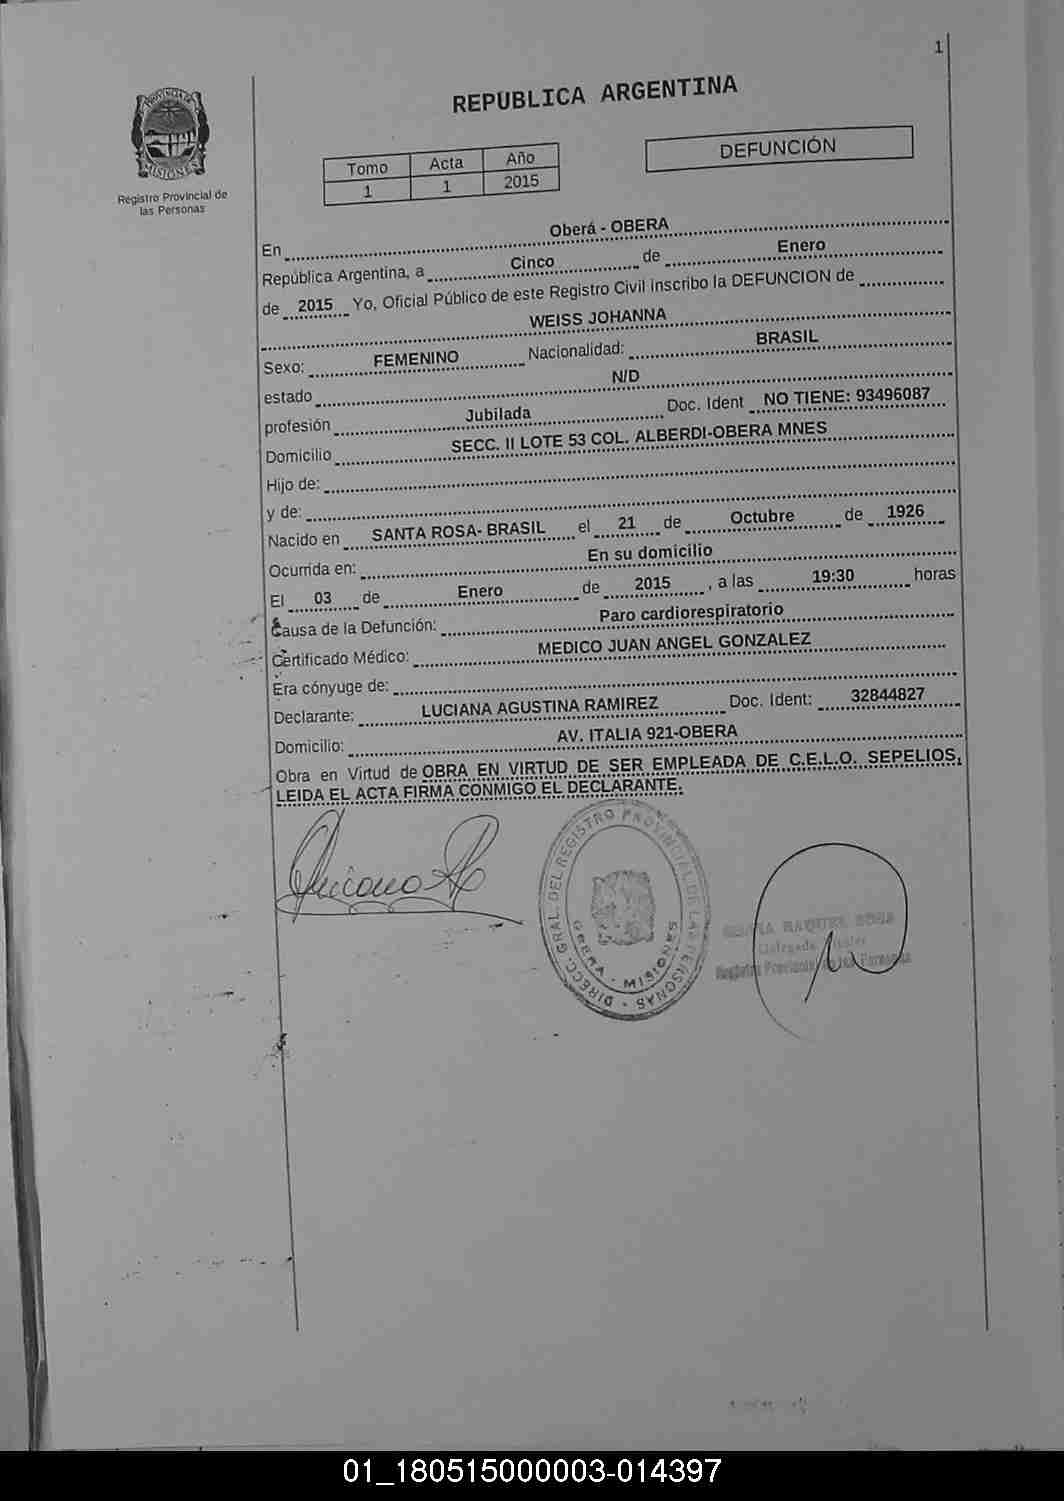 1
REPUBLICA ARGENTINA
PROVINCIA DE
MISIONES
Registro Provincial de
las Personas
Tomo Acta Año
1 1 2015
DEFUNCIÓN
En Oberá - OBERA
República Argentina, a Cinco de Enero
de 2015 Yo, Oficial Público de este Registro Civil inscribo la DEFUNCION de
WEISS JOHANNA
Sexo: FEMENINO Nacionalidad: BRASIL
estado N/D
profesión Jubilada Doc. Ident NO TIENE: 93496087
Domicilio SECC. II LOTE 53 COL. ALBERDI-OBERA MNES
Hijo de:
y de:
Nacido en SANTA ROSA- BRASIL el 21 de Octubre de 1926
Ocurrida en: En su domicilio
El 03 de Enero de 2015 , a las 19:30 horas
Causa de la Defunción: Paro cardiorespiratorio
Certificado Médico: MEDICO JUAN ANGEL GONZALEZ
Era cónyuge de:
Declarante: LUCIANA AGUSTINA RAMIREZ Doc. Ident: 32844827
Domicilio: AV. ITALIA 921-OBERA
Obra en Virtud de OBRA EN VIRTUD DE SER EMPLEADA DE C.E.L.O. SEPELIOS,
LEIDA EL ACTA FIRMA CONMIGO EL DECLARANTE.
DIRECC. GRAL. DEL REGISTRO PROVINCIAL DE LAS PERSONAS
OBERA - MISIONES
RAQUEL
Delegada
Registro Provincial de las Personas
01_180515000003-014397